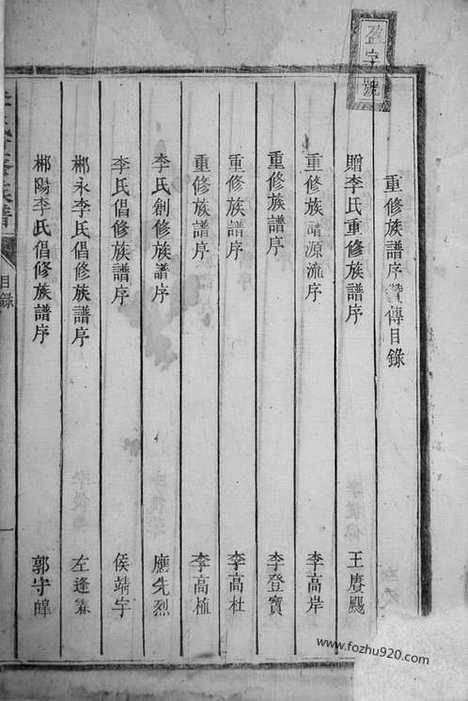 字號
重修族譜序贊傳目錄
贈李氏重修族譜序 王賡颺
重修族譜源流序 李高岸
重修族譜序 李登寶
重修族譜序 李高杜
重修族譜序 李高植
李氏創修族譜序 廖先烈
李氏倡修族譜序 侯靖宇
郴永李氏倡修族譜序 左逢
郴陽李氏倡修族譜序 郭守
族譜
目錄
一
www.fozhu920.com